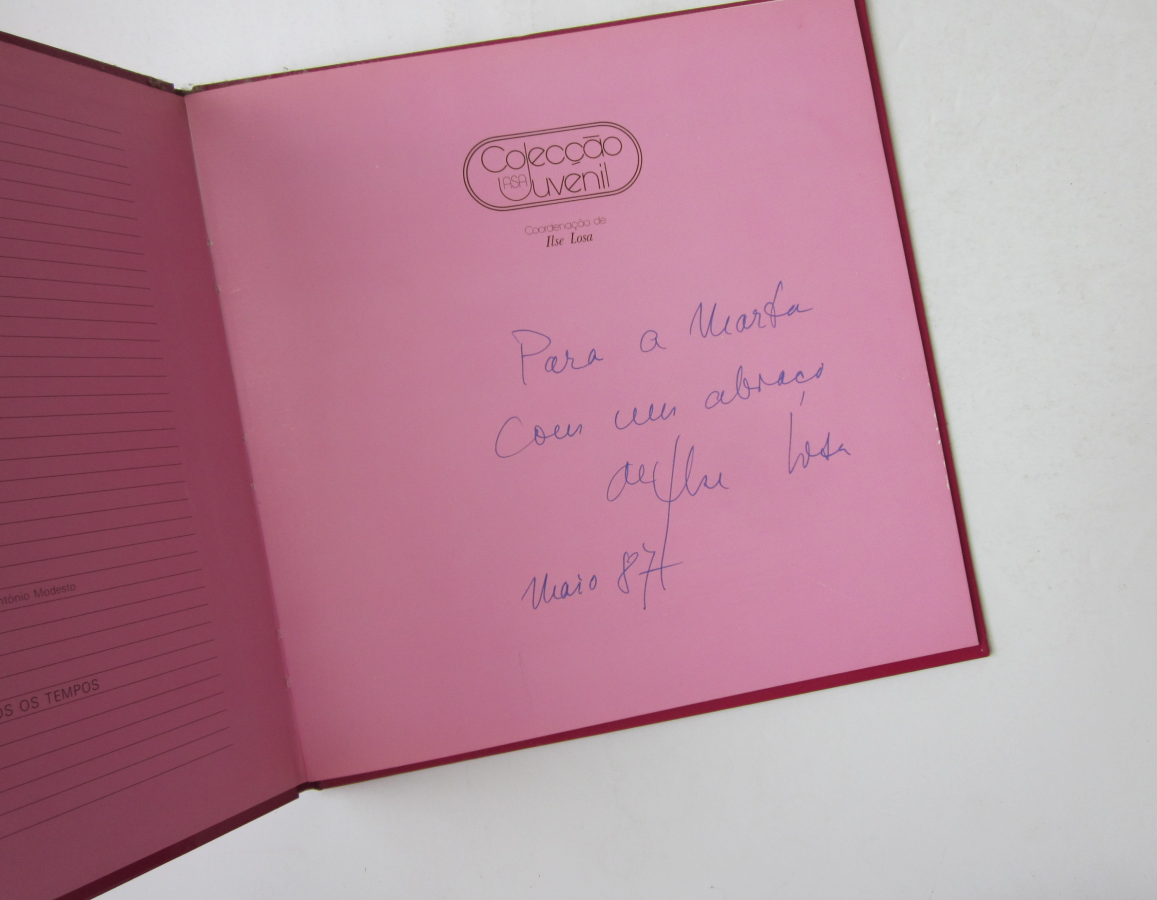 ntónio Modesto
OS OS TEMPOS
Colecção
ASA Juvenil
Coordenação de
Ilse Losa
Para a Marta
Com um abraço
de Ilse Losa
Maio 87